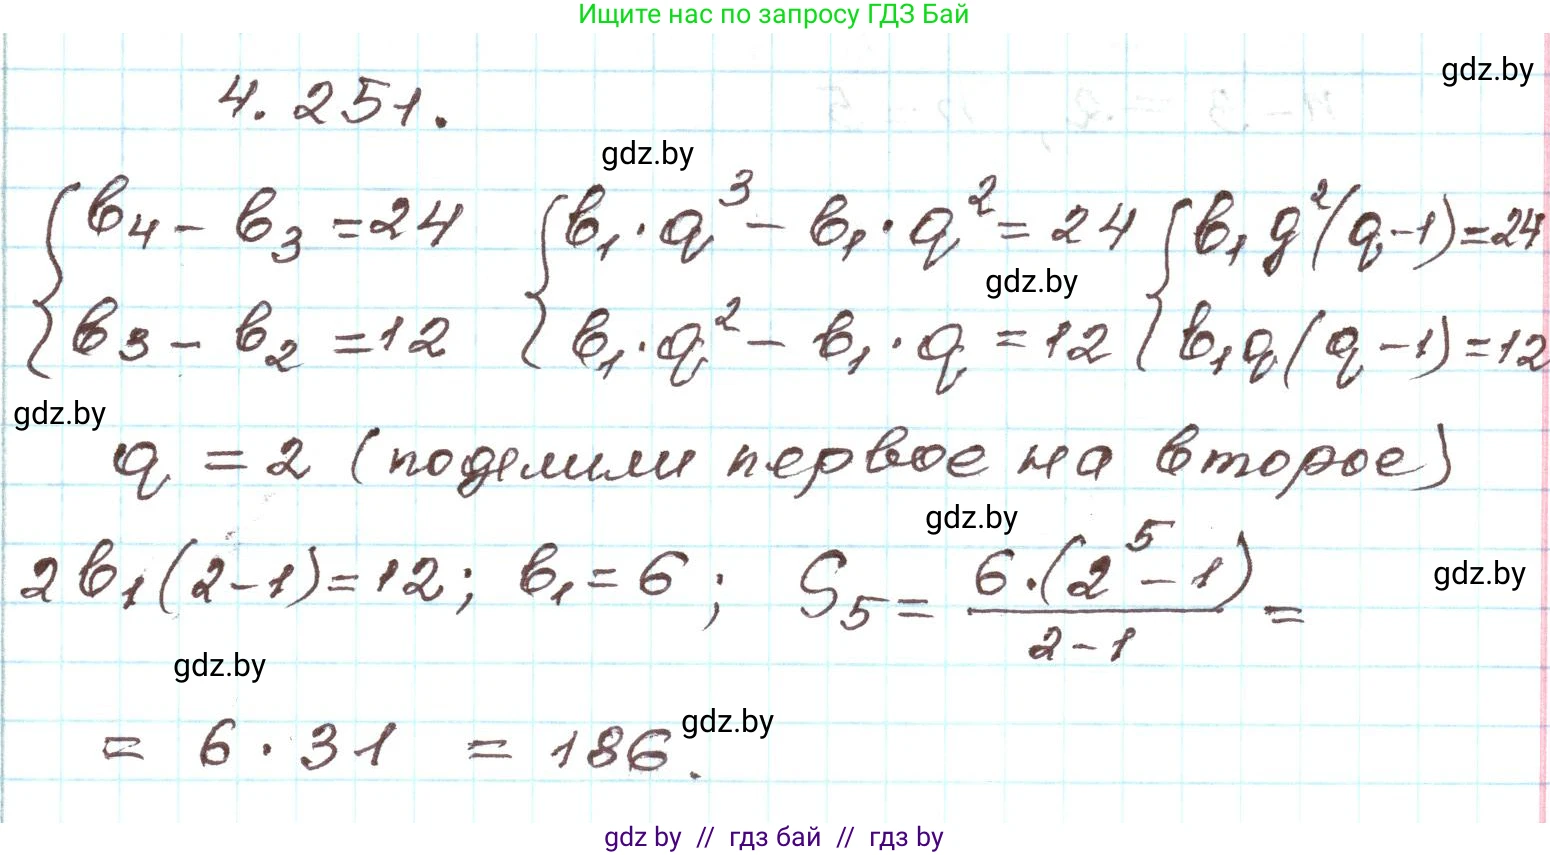 Ищите нас по запросу ГДЗ Бай
gdz.by
4.251.
gdz.by
{ в₄ - в₃ = 24 { в₁ · q³ - в₁ · q² = 24 { в₁ q² (q - 1) = 24
gdz.by
{ в₃ - в₂ = 12 { в₁ · q² - в₁ · q = 12 { в₁ q (q - 1) = 12
gdz.by
q = 2 (поделили первое на второе)
gdz.by
2в₁(2-1) = 12; в₁ = 6; S₅ = 6·(2⁵ - 1) / 2 - 1 =
gdz.by
gdz.by
= 6 · 31 = 186.
gdz.by
gdz by // гдз бай // гдз by